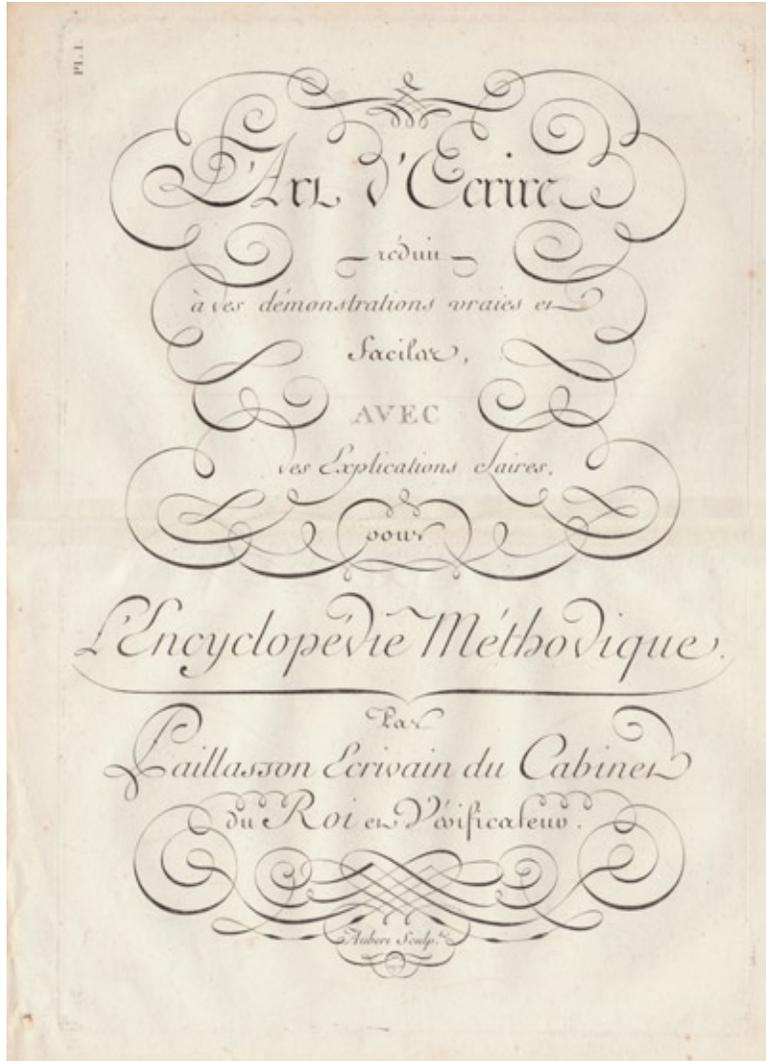 Pl. 1.
L'Art d'Ecrire
réduit
à des démonstrations vraies et
faciles,
AVEC
des Explications claires,
pour
L'Encyclopédie Méthodique.
Par
Paillasson Ecrivain du Cabinet
du Roi et Vérificateur.
Aubert Sculp.